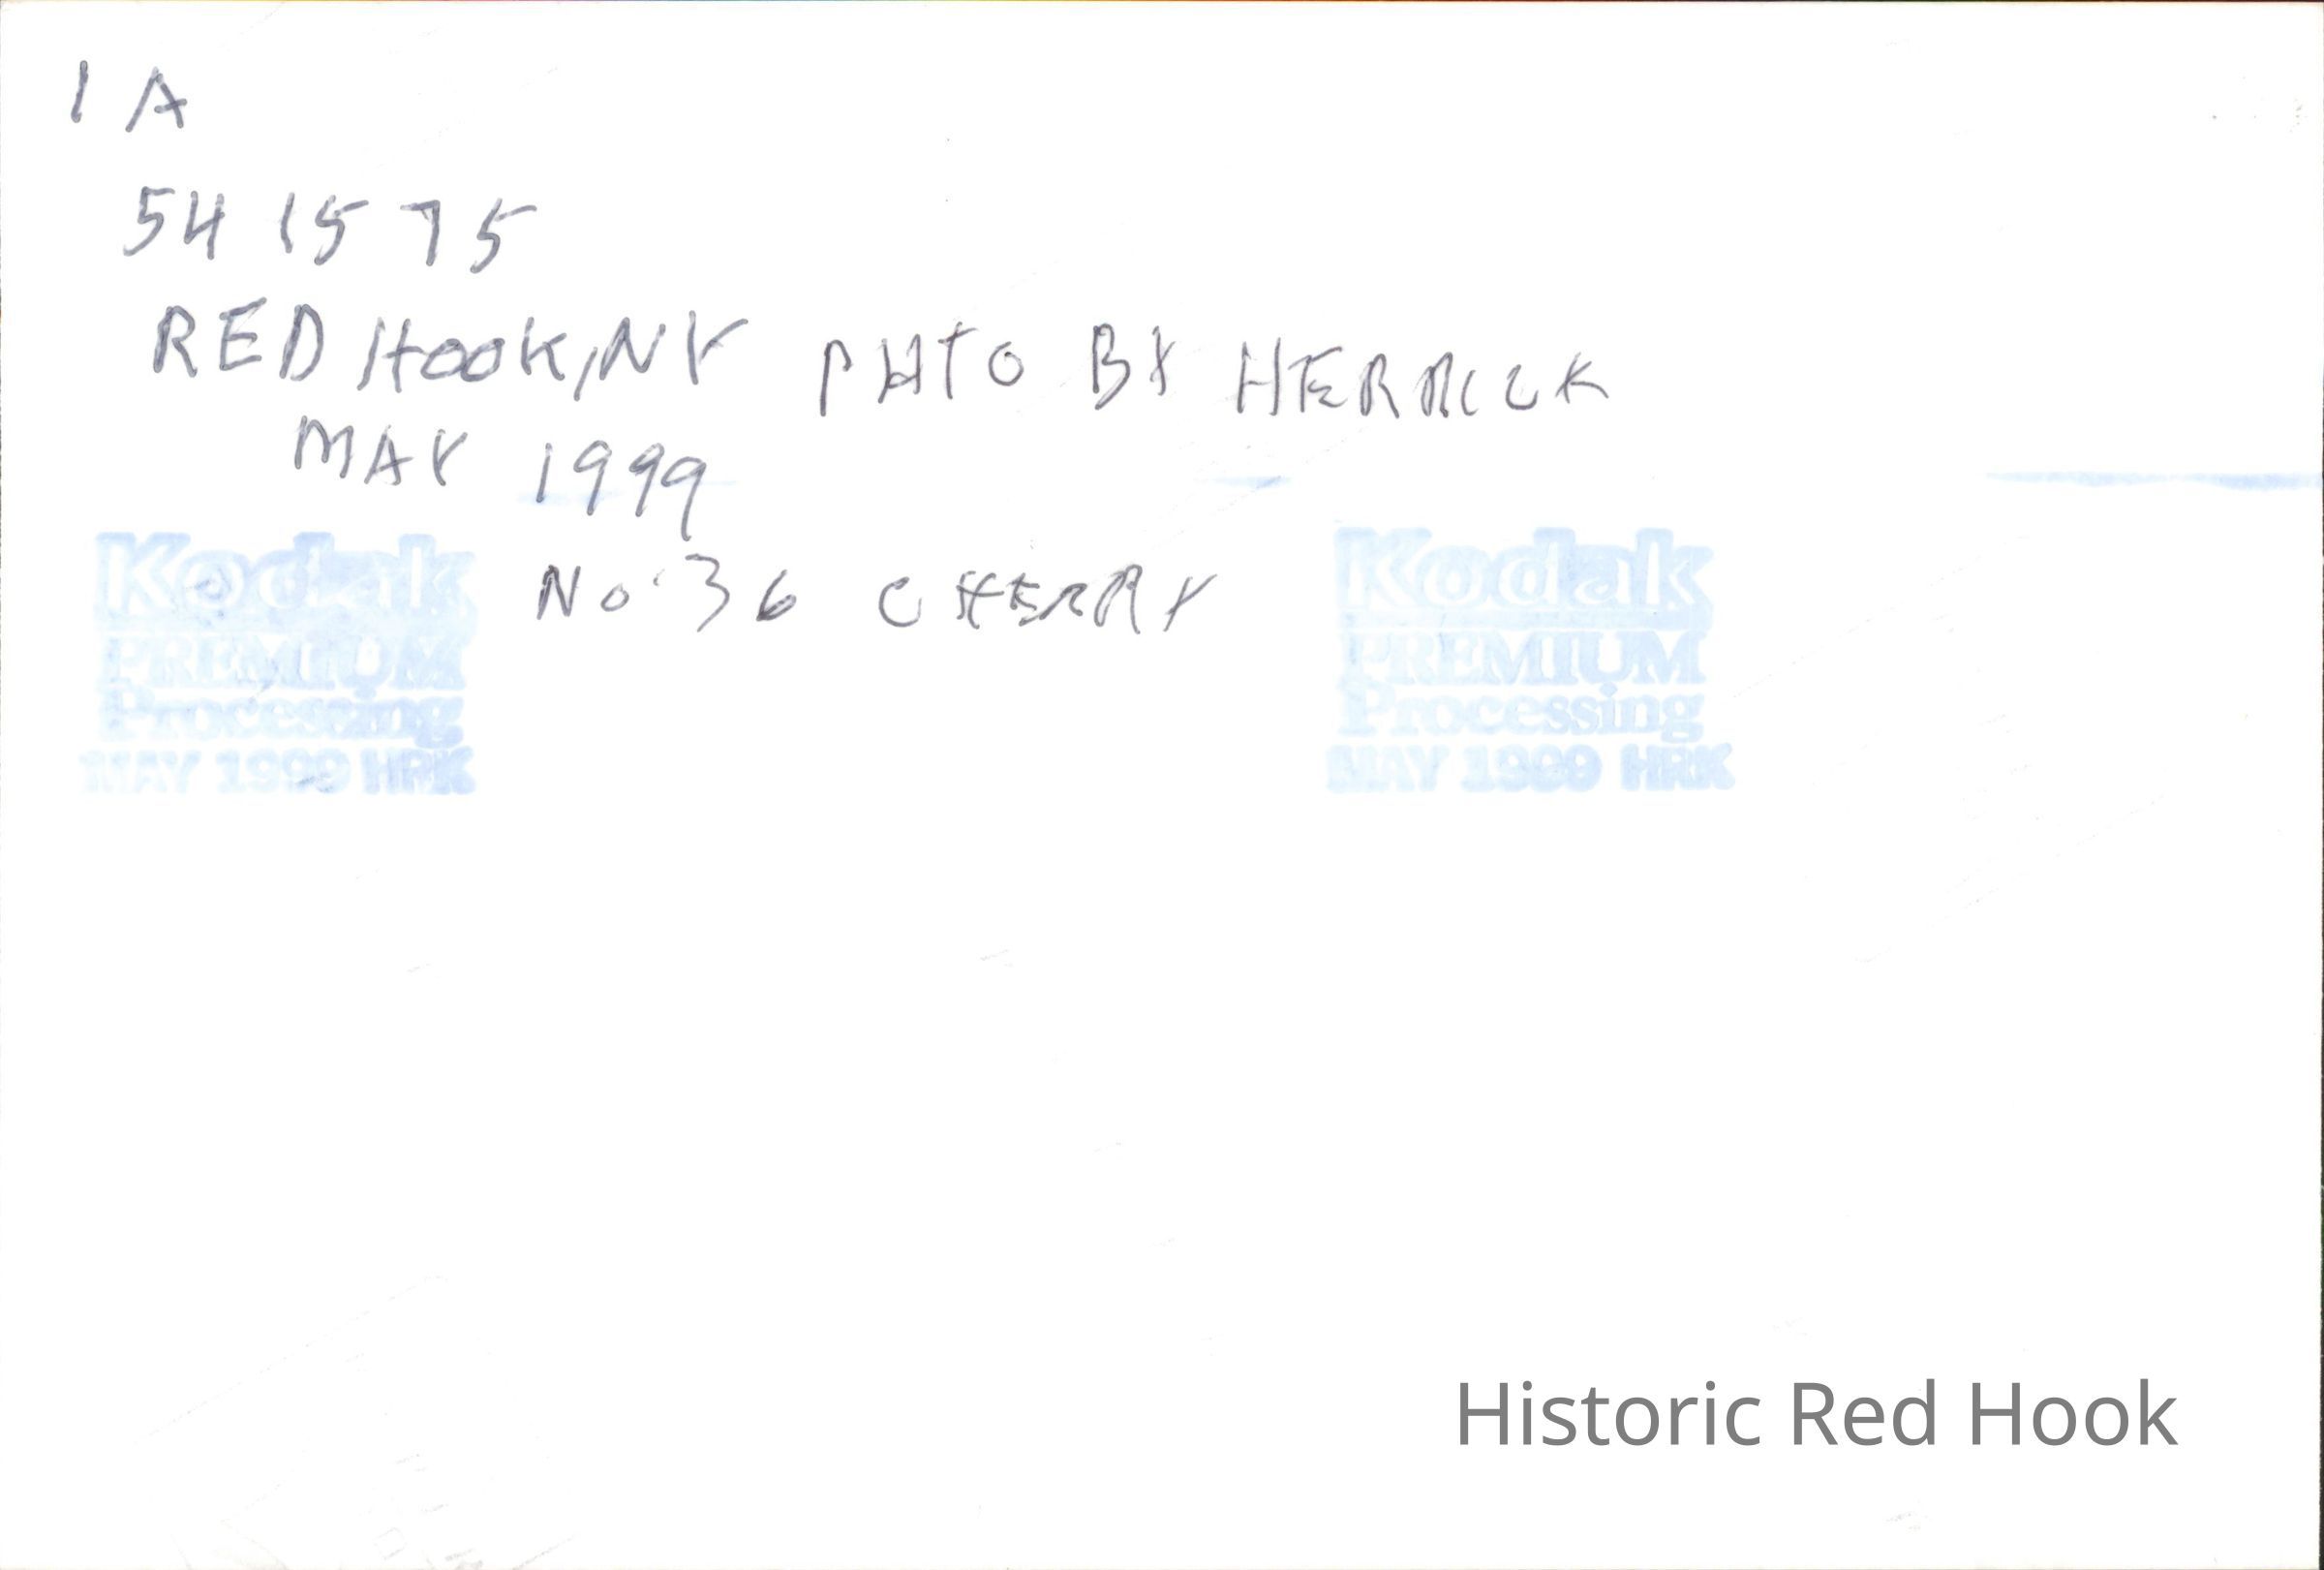 1 A
54 15 75
RED HOOK, NY PHTO BY HERRICK
MAY 1999
No. 36 CHERRY
Kodak
PREMIUM
Processing
MAY 1999 HRK
Kodak
PREMIUM
Processing
MAY 1999 HRK
Historic Red Hook